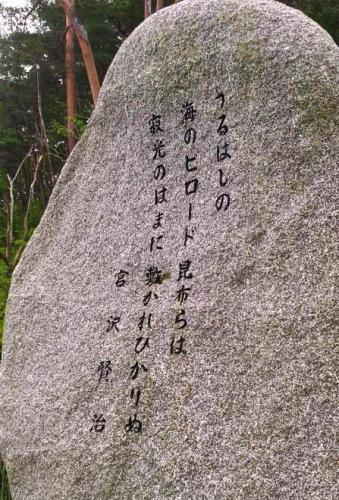 うるはしの
海のビロード 昆布らは
寂光のはまに 敷かれひかりぬ
宮沢賢治